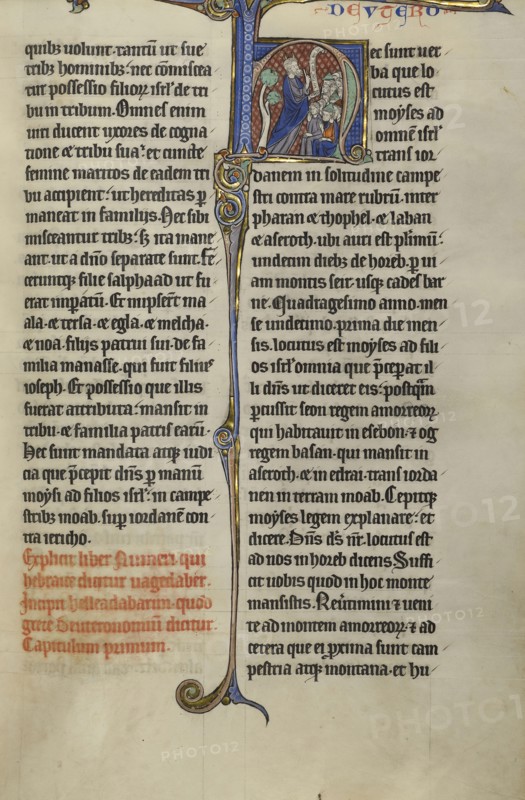 DEVTERO
quibȝ uolunt. tantū ut sue
tribȝ hominibȝ. nec cōmiscea
tur possessio filiorȝ isrl' de tri
bu in tribum. Omnes enim
uiri ducent uxores de cogna
tione ⁊ tribu sua: et cuncte
femine maritos de eadem tri
bu accipient: ut hereditas ꝑ
maneat in familijs. Nec sibi
misceantur tribȝ: sȝ ita mane
ant. ut a dn̄o separate sunt. Fe
ceruntqȝ filie salphaad ut fu
erat imꝑatū. Et nupserͭ ma
ala. ⁊ tersa. ⁊ egla. ⁊ melcha.
⁊ noa. filijs patrui sui. de fa
milia manasse. qui fuit filiꝰ
ioseph. Et possessio que illis
fuerat attributa: mansit in
tribu. ⁊ familia patris earū.
Hec sunt mandata atqȝ iudi
cia que p̄cepit dn̄s ꝑ manū
moysi ad filios isrl': in campe
stribȝ moab. suꝑ iordanē con
tra iericho.
Explicit liber Numeri. qui
hebraice dicitur uagedaber.
Incipit helleadabarim. quod
grece Deuteronomiū dicitur.
Capitulum primum.
ec sunt uer
ba que lo
cutus est
moyses ad
omnē isrl'
trans ior
danem in solitudine campe
stri contra mare rubrū. inter
pharan ⁊ thophel. ⁊ laban
⁊ aseroth. ubi auri est plʼimū:
undecim diebȝ de horeb. ꝑ ui
am montis seir. usqȝ cades bar
ne. Quadragesimo anno. men
se undecimo. prima die men
sis. locutus est moyses ad fili
os isrl' omnia que p̄ceꝑat il
li dn̄s ut diceret eis: postqm̄
ꝑcussit seon regem amorreorȝ
qui habitauit in esebon. ⁊ og
regem basan. qui mansit in
aseroth. ⁊ in edrai. trans iorda
nen in terram moab. Cepitqȝ
moyses legem explanare: et
dicere. Dn̄s ds̄ nr̄. locutus est
ad nos in horeb dicens. Suffi
cit uobis quod in hoc monte
mansistis. Reūtimini ⁊ ueni
te ad montem amorreorȝ. ⁊ ad
cetera que ei ꝓxima sunt cam
pestria atqȝ montana. et hu
PHOTO12